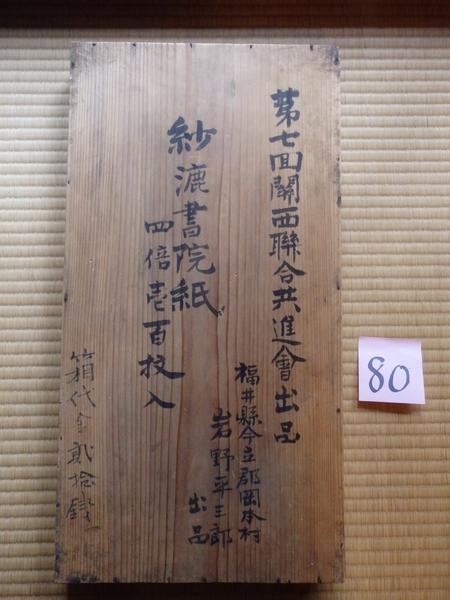 第七回關西聯合共進會出品
福井縣今立郡岡本村
岩野平三郎
出品
紗漉書院紙
四倍壱百枚入
箱代金貳拾錢
80